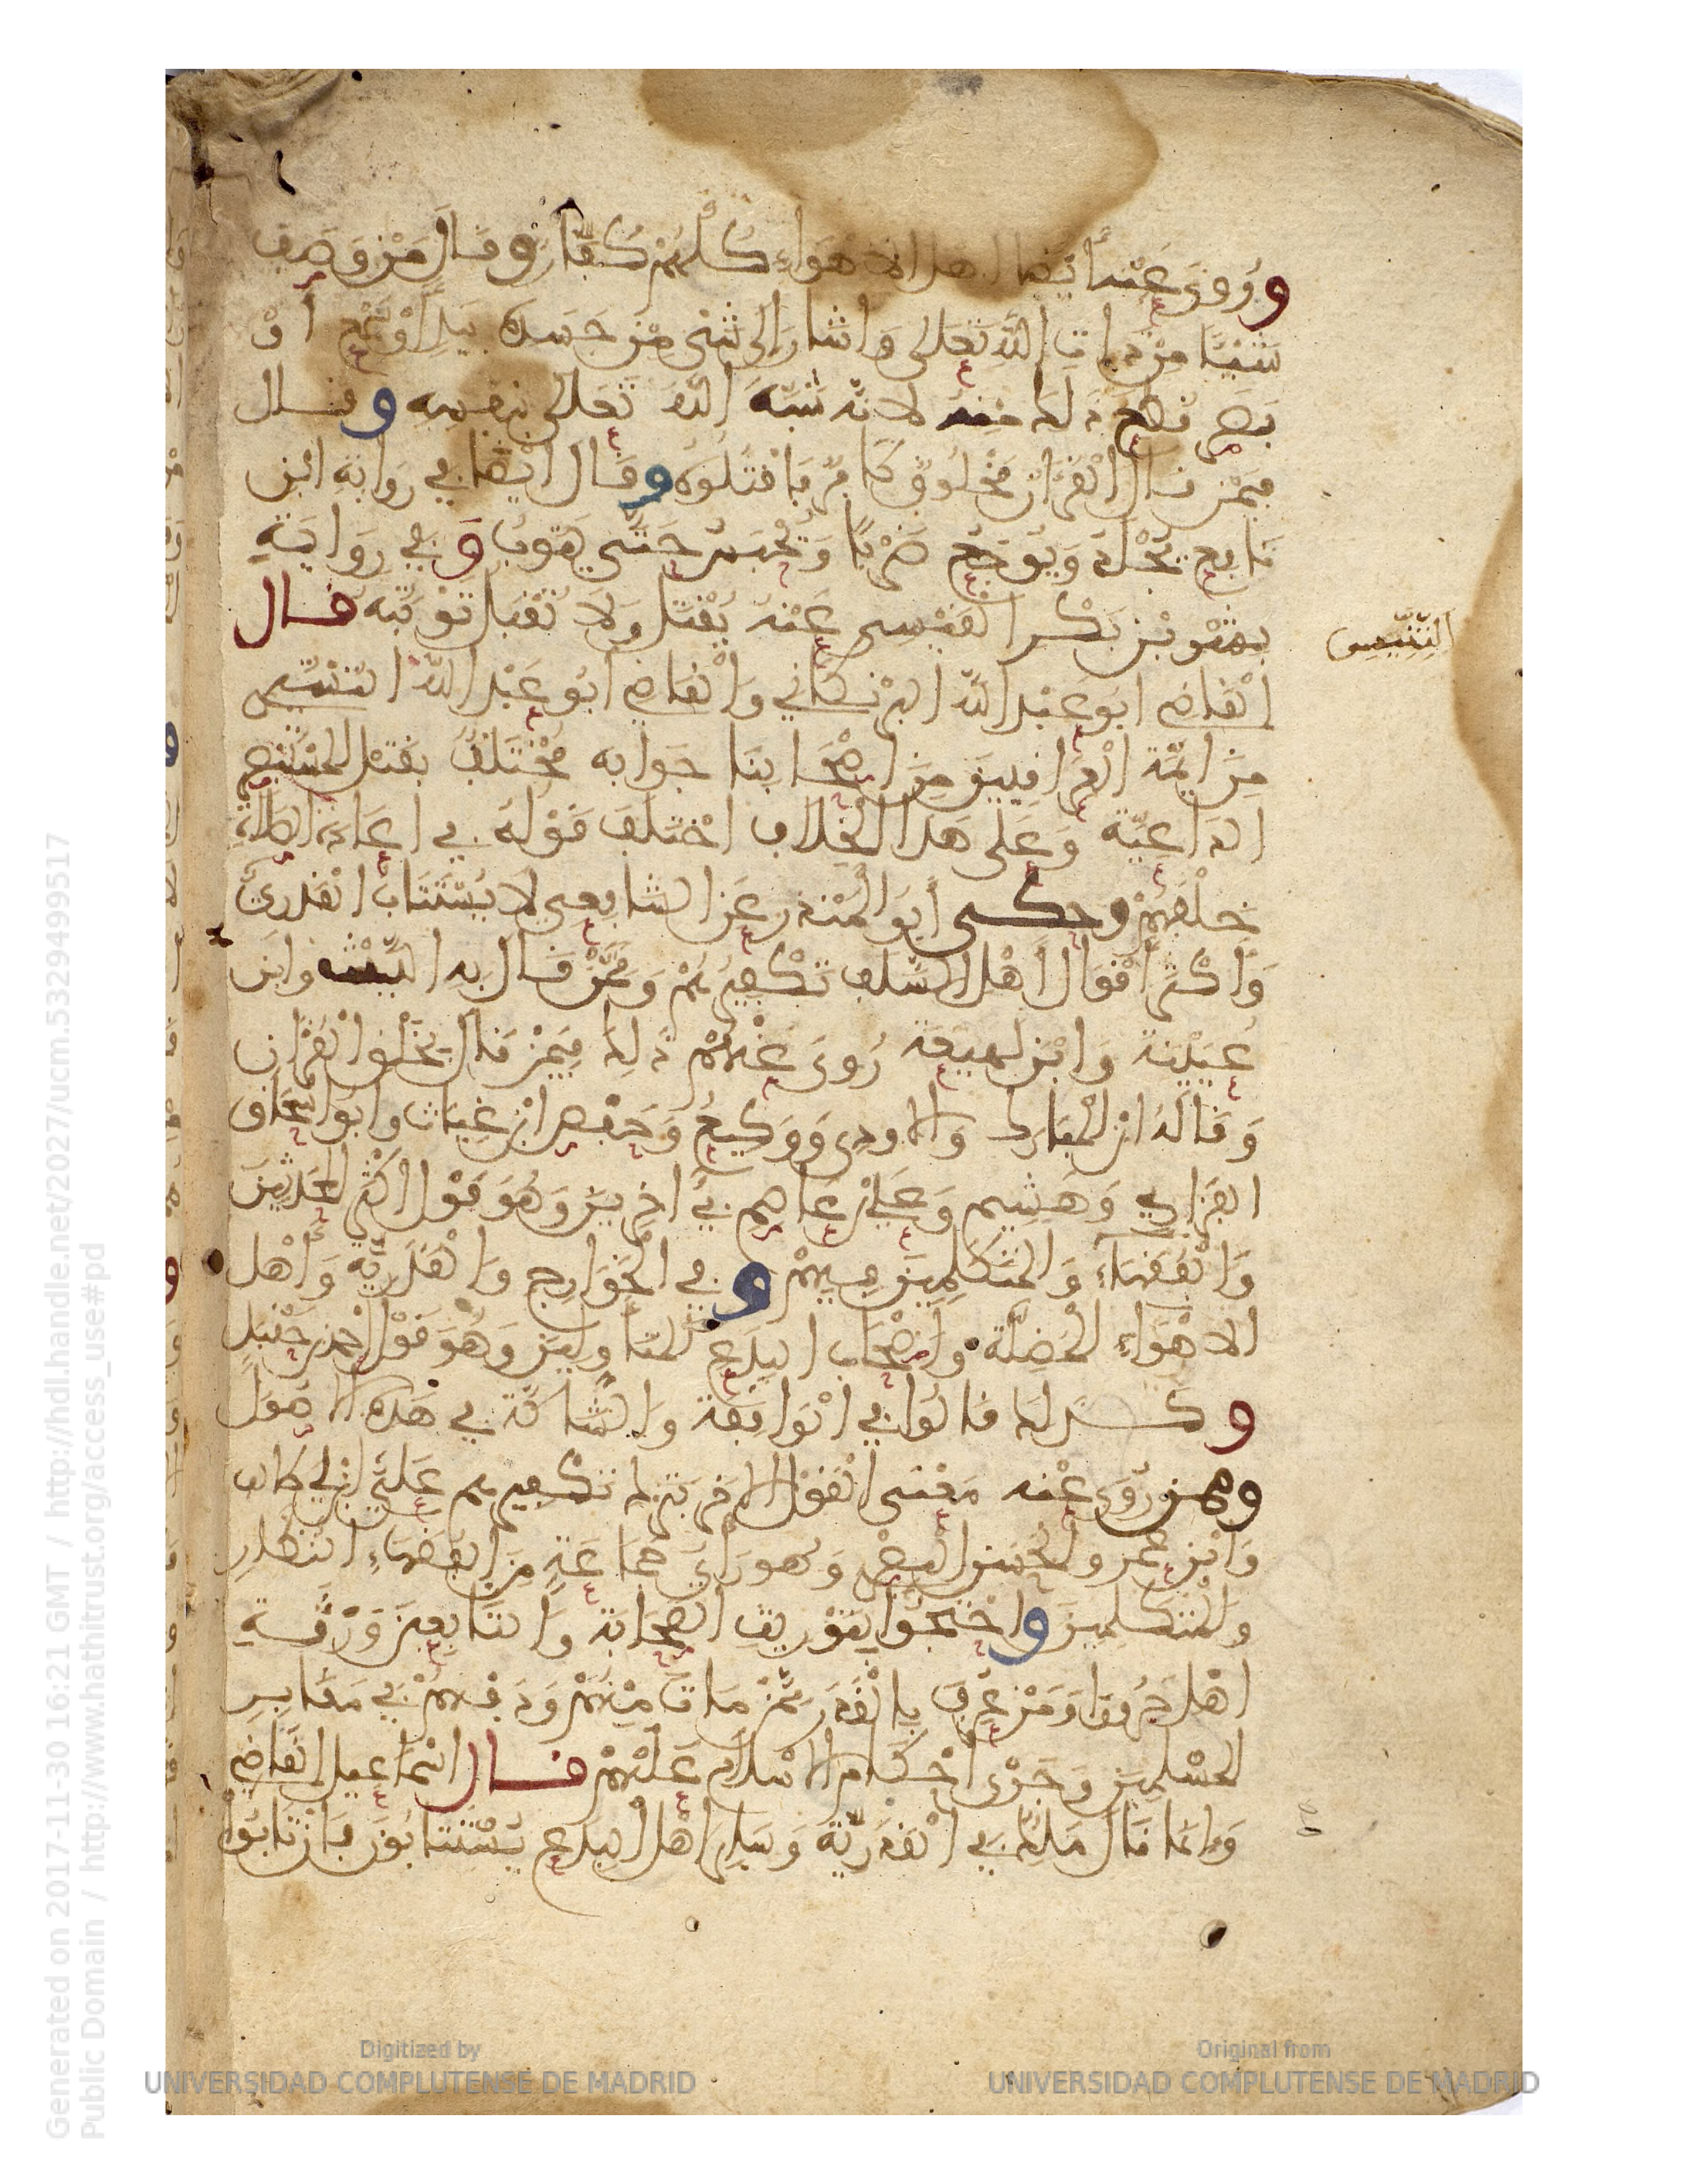 وروي عنه أيضا أهل الأهواء كلهم كفار وقال من وصف
شيئا من ذات الله تعلى وأشار إلى شيء من جسده يد أو سمع أو
بصر قطع ذلك منه لأنه شبه الله تعلى بنفسه وقال
فيمن قال القرءان مخلوق كافر فاقتلوه وقال أيضا في رواية ابن
نافع يجلد ويوجع ضربا ويحبس حتى يتوب وفي رواية
بشر بن بكر التنيسي عنه يقتل ولا تقبل توبته قال
التنيسي
القاضي أبو عبد الله البرنكاني والقاضي أبو عبد الله التستري
من أيمة العراقيين من أصحابنا جوابه مختلف بقتل المستبصر
الداعية وعلى هذا الخلاف اختلف قوله في إعادة الصلاة
خلفهم وحكى أبو المنذر عن الشافعي لا يستتاب القدري
وأكثر أقوال أهل السلف تكفيرهم وممن قال به الليث وابن
عيينة وابن لهيعة روي عنهم ذلك فيمن قال بخلق القرءان
وقاله ابن المبارك والاودي ووكيع وحفص ابن غياث وأبو إسحاق
الفزاري وهشيم وعلي بن عاصم في آخرين وهو قول أكثر المحدثين
والفقهاء والمتكلمين فيهم وفي الخوارج والقدرية وأهل
الأهواء المضلة وأصحاب البدع المتأولين وهو قول أحمد بن حنبل
وكذلك قالوا في الواقفة والشاكة في هذه الأصول
وممن روي عنه معنى القول الآخر بترك تكفيرهم علي بن أبي طالب
وابن عمر والحسن البصري وهو رأي جماعة من الفقهاء النظار
والمتكلمين واحتجوا بتوريث الصحابة والتابعين ورثة
أهل حروراء ومن عرف بالقدر ممن مات منهم ودفنهم في مقابر
المسلمين وجري أحكام الإسلام عليهم قال إسماعيل القاضي
وإنما قال ملك في القدرية وسائر أهل البدع يستتابون فإن تابوا
Generated on 2017-11-30 16:21 GMT / http://hdl.handle.net/2027/ucm.5329499517
Public Domain / http://www.hathitrust.org/access_use#pd
Digitized by
UNIVERSIDAD COMPLUTENSE DE MADRID
Original from
UNIVERSIDAD COMPLUTENSE DE MADRID